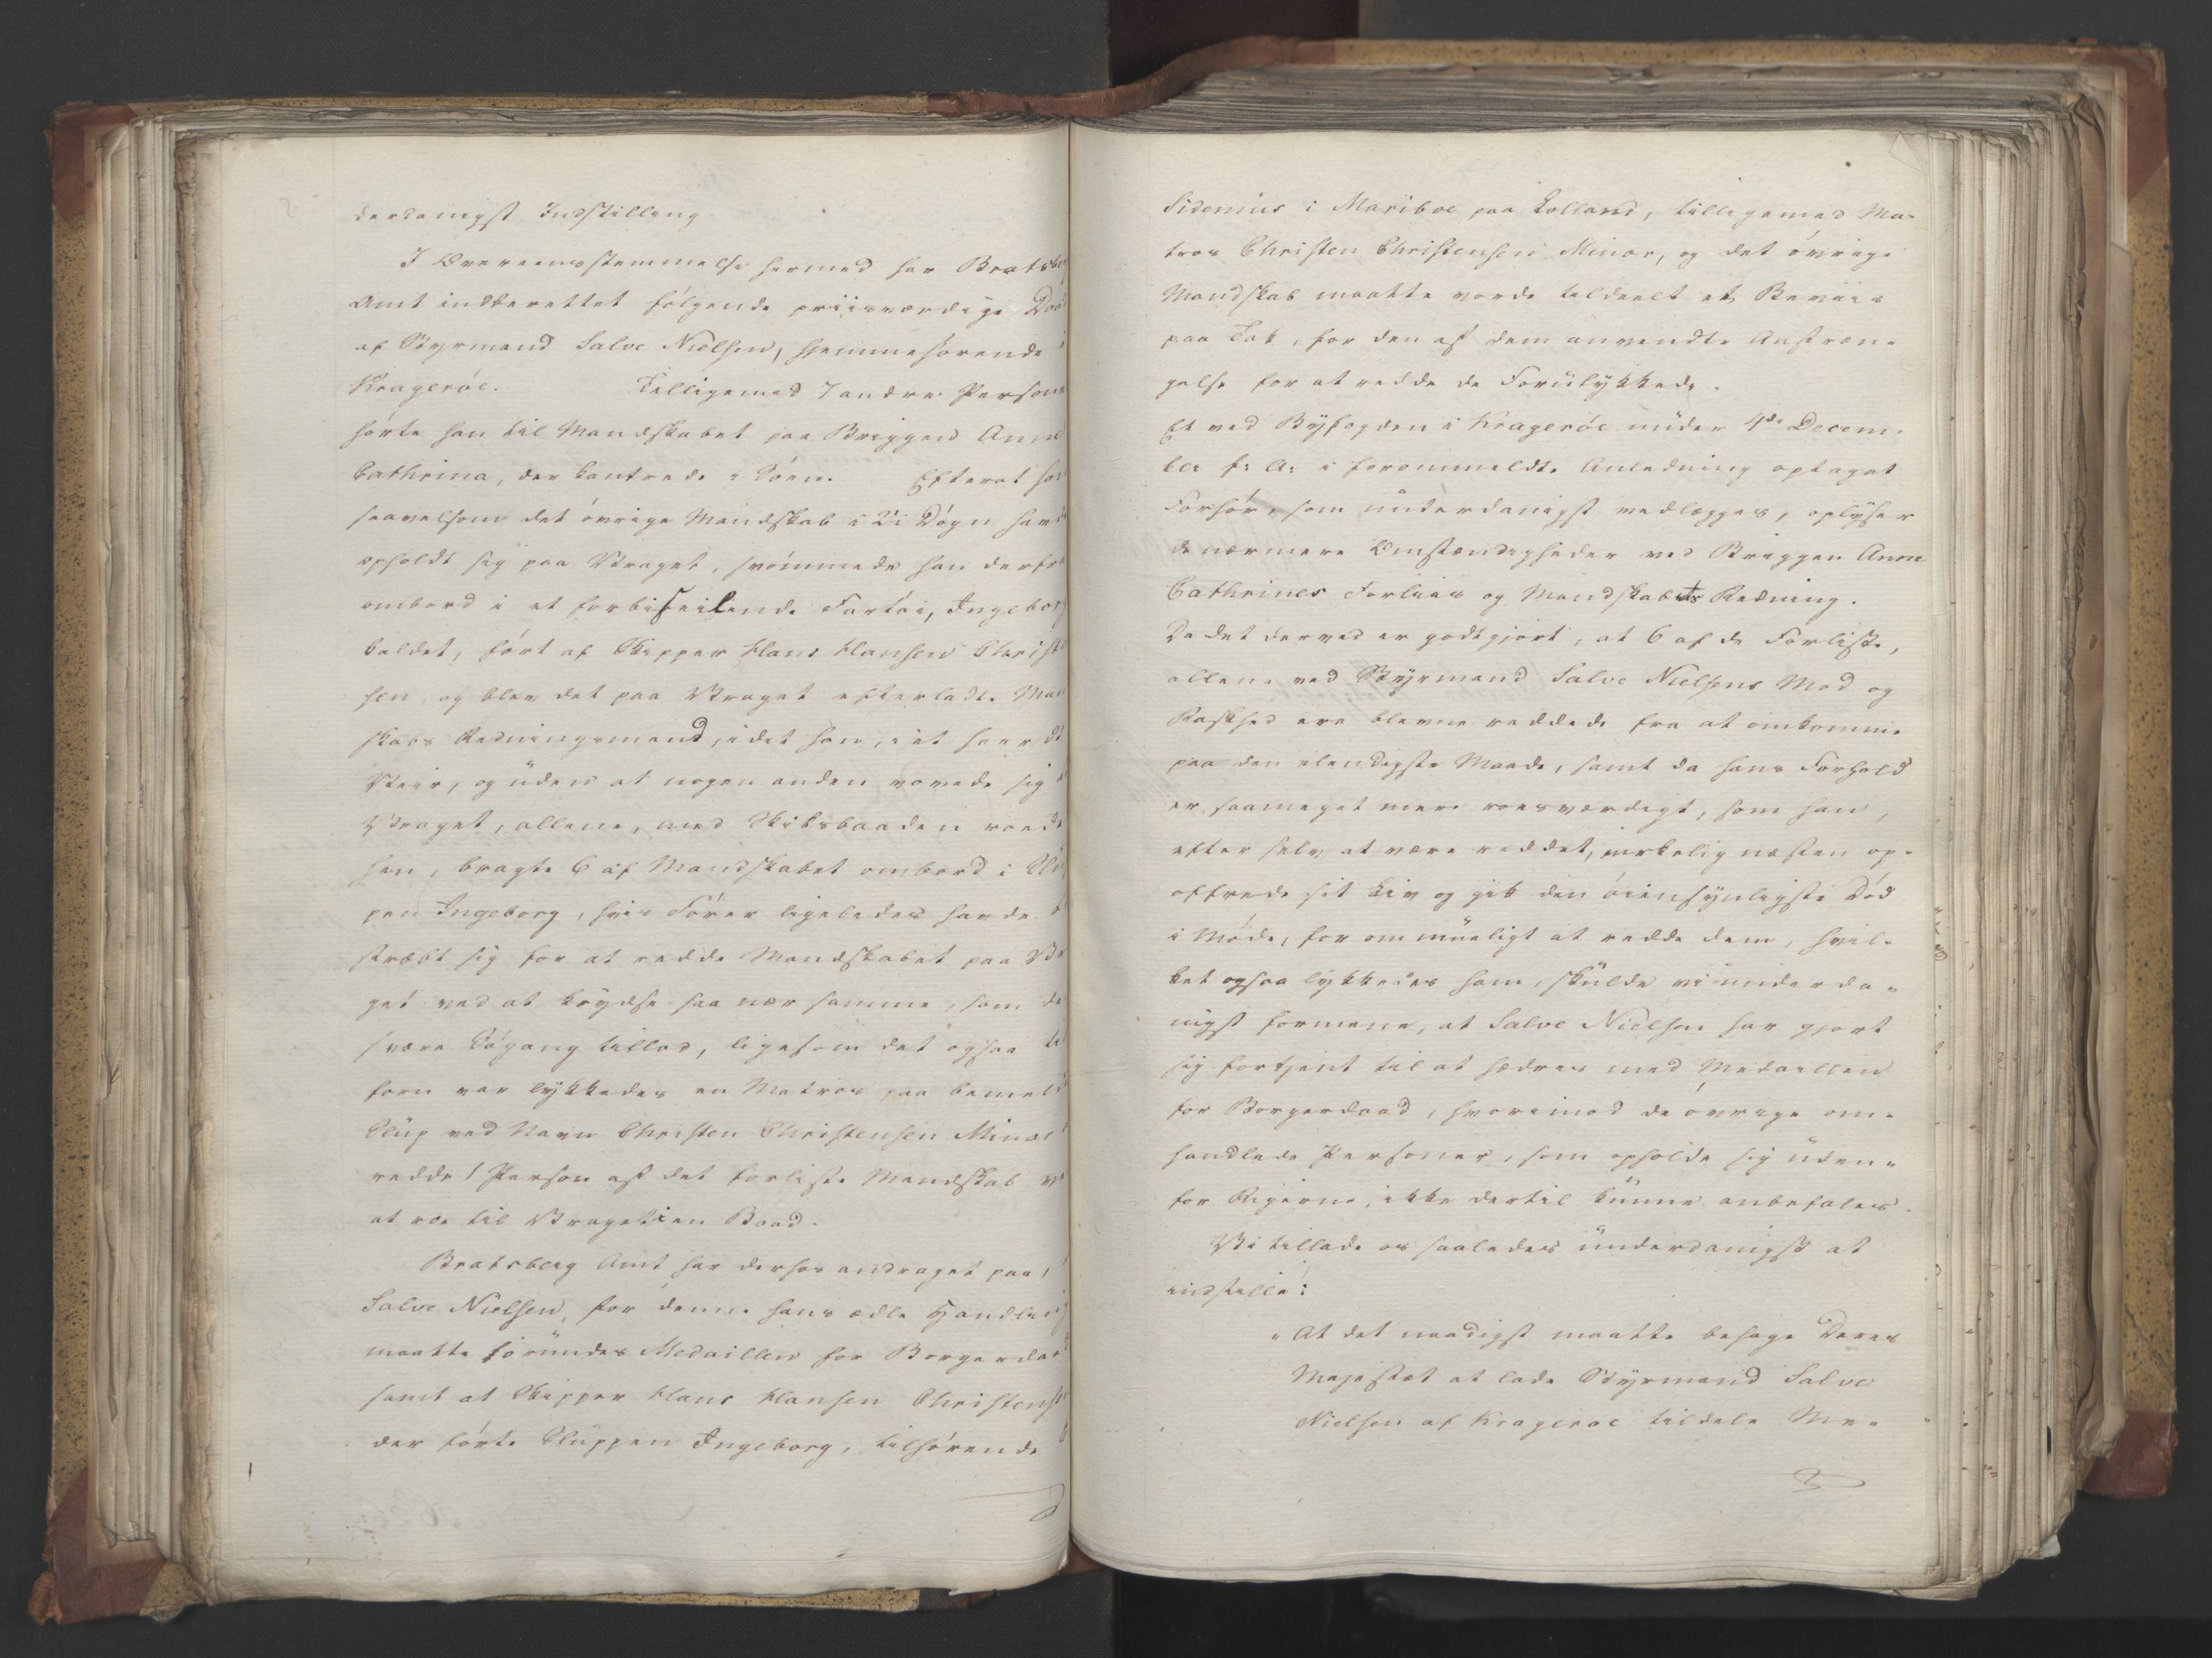 derdanigst Indstilling.
I Overeensstemmelse hermed har Bratsbe
Amt indberettet følgende priisværdige Daa
af Styrmand Salve Nielsen, hjemmehørende i
Kragerøe. Tilligemed 7 andre Persone
hørte han til Mandskabet paa Briggen Anne
Cathrina, der kantrede i Søen. Efterat han
saavelsom det øvrige Mandskab i Døgn havde
opholdt sig paa Vraget, svømmede han derfra
ombord i et forbiseilende Fartøi, Ingeborg
kaldet, ført af Skipper Hans Hansen Christen
sen, og blev det paa Vraget efterladte Mand
skabs Redningsmand, idet han, i et haardt
Veir, og uden at nogen anden vovede sig
Vraget, allene, med Skibsbaaden roede
hen, bragte 6 af Mandskabet ombord i Slup
pen Ingeborg, hvis Fører ligeledes havde
stræbt sig for at redde Mandskabet paa Vra
get ved at krydse saa nær samme, som de
svære Søgang tillod, ligesom det ogsaa til
forn var lykkedes en Matros paa bemeld
Slup ved Navn Christen Christensen Minor
redde 1 Person af det forliste Mandskab ve
at roe til Vraget i en Baad.
Bratsberg Amt har derhos andraget paa,
Salve Nielsen, for denne hans ædle Handling
maatte forundes Medaillen for Borgerdaad
samt at Skipper Hans Hansen Christensen
der førte Sluppen Ingeborg, tilhørende
Sidenius i Mariboe paa Lolland, tilligemed Ma-
tros Christen Christensen Minor, og det øvrige
Mandskab maatte vorde tildeelt et Beviis
paa Tak, for den af dem anvendte Anstræn-
gelse for at redde de Forulykkede.
Et ved Byfogden i Kragerøe under 4de Decem-
ber f: A: i forommeldte Anledning optaget
Forhør, som underdanigst vedlægges, oplyser
de nærmere Omstændigheder ved Briggen Anne
Cathrines Forliis og Mandskabets Redning.
Da det derved er godtgjort, at 6 af de Forliste,
allene ved Styrmand Salve Nielsens Mod og
Raskhed ere blevne reddede fra at omkomme
paa den elendigste Maade, samt da hans Forhold
er saameget mere roesværdigt, som han,
efter selv at være reddet, virkelig næsten op-
offrede sit Liv og gik den øiensynligste Død
i Møde, for om mueligt at redde dem, hvil-
ket ogsaa lykkedes ham, skulde vi underda-
nigst formene, at Salve Nielsen har gjort
sig fortjent til at hædres med Medaillen
for Borgerdaad, hvorimod de øvrige om-
handlede Personer, som opholde sig uden-
for Rigerne, ikke dertil kunne anbefales.
Vi tillade os saaledes underdanigst at
indstille:
"At det naadigst maatte behage Deres
Majestæt at lade Styrmand Salve
Nielsen af Kragerøe tildele Me-